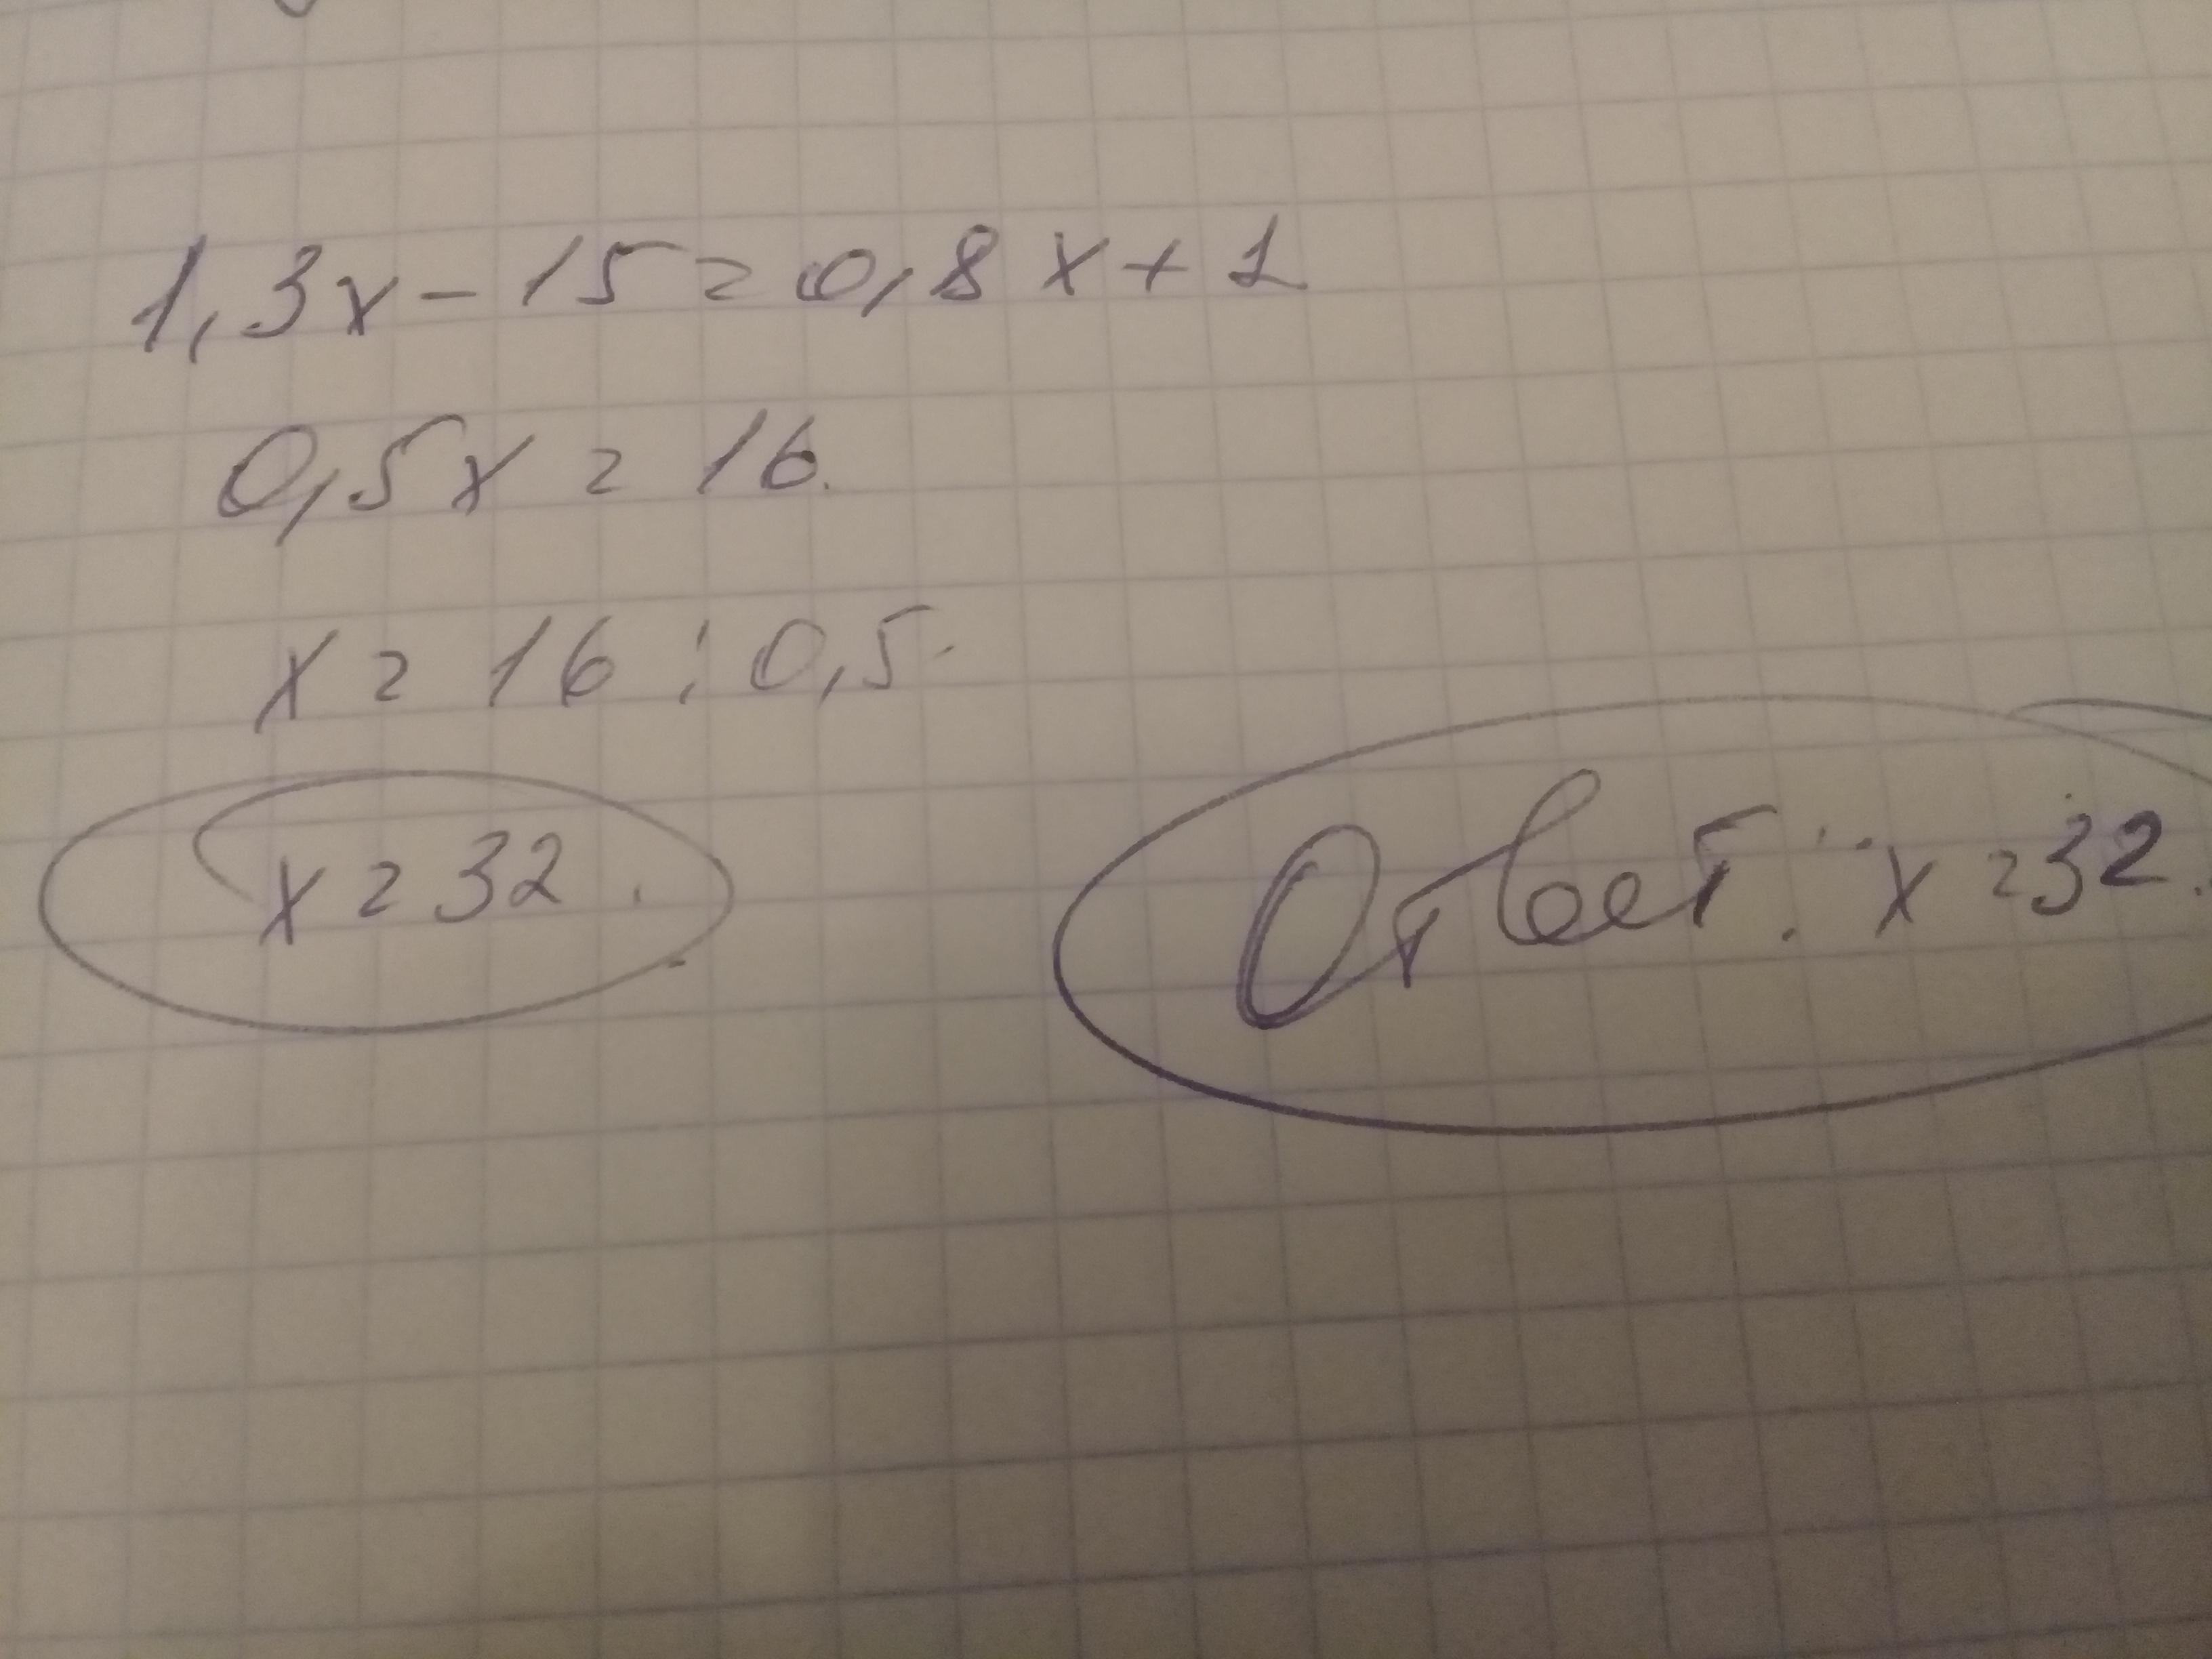 1,3x - 15 = 0,8x + 1
0,5x = 16.
x = 16 : 0,5.
x = 32.
Ответ: x = 32.